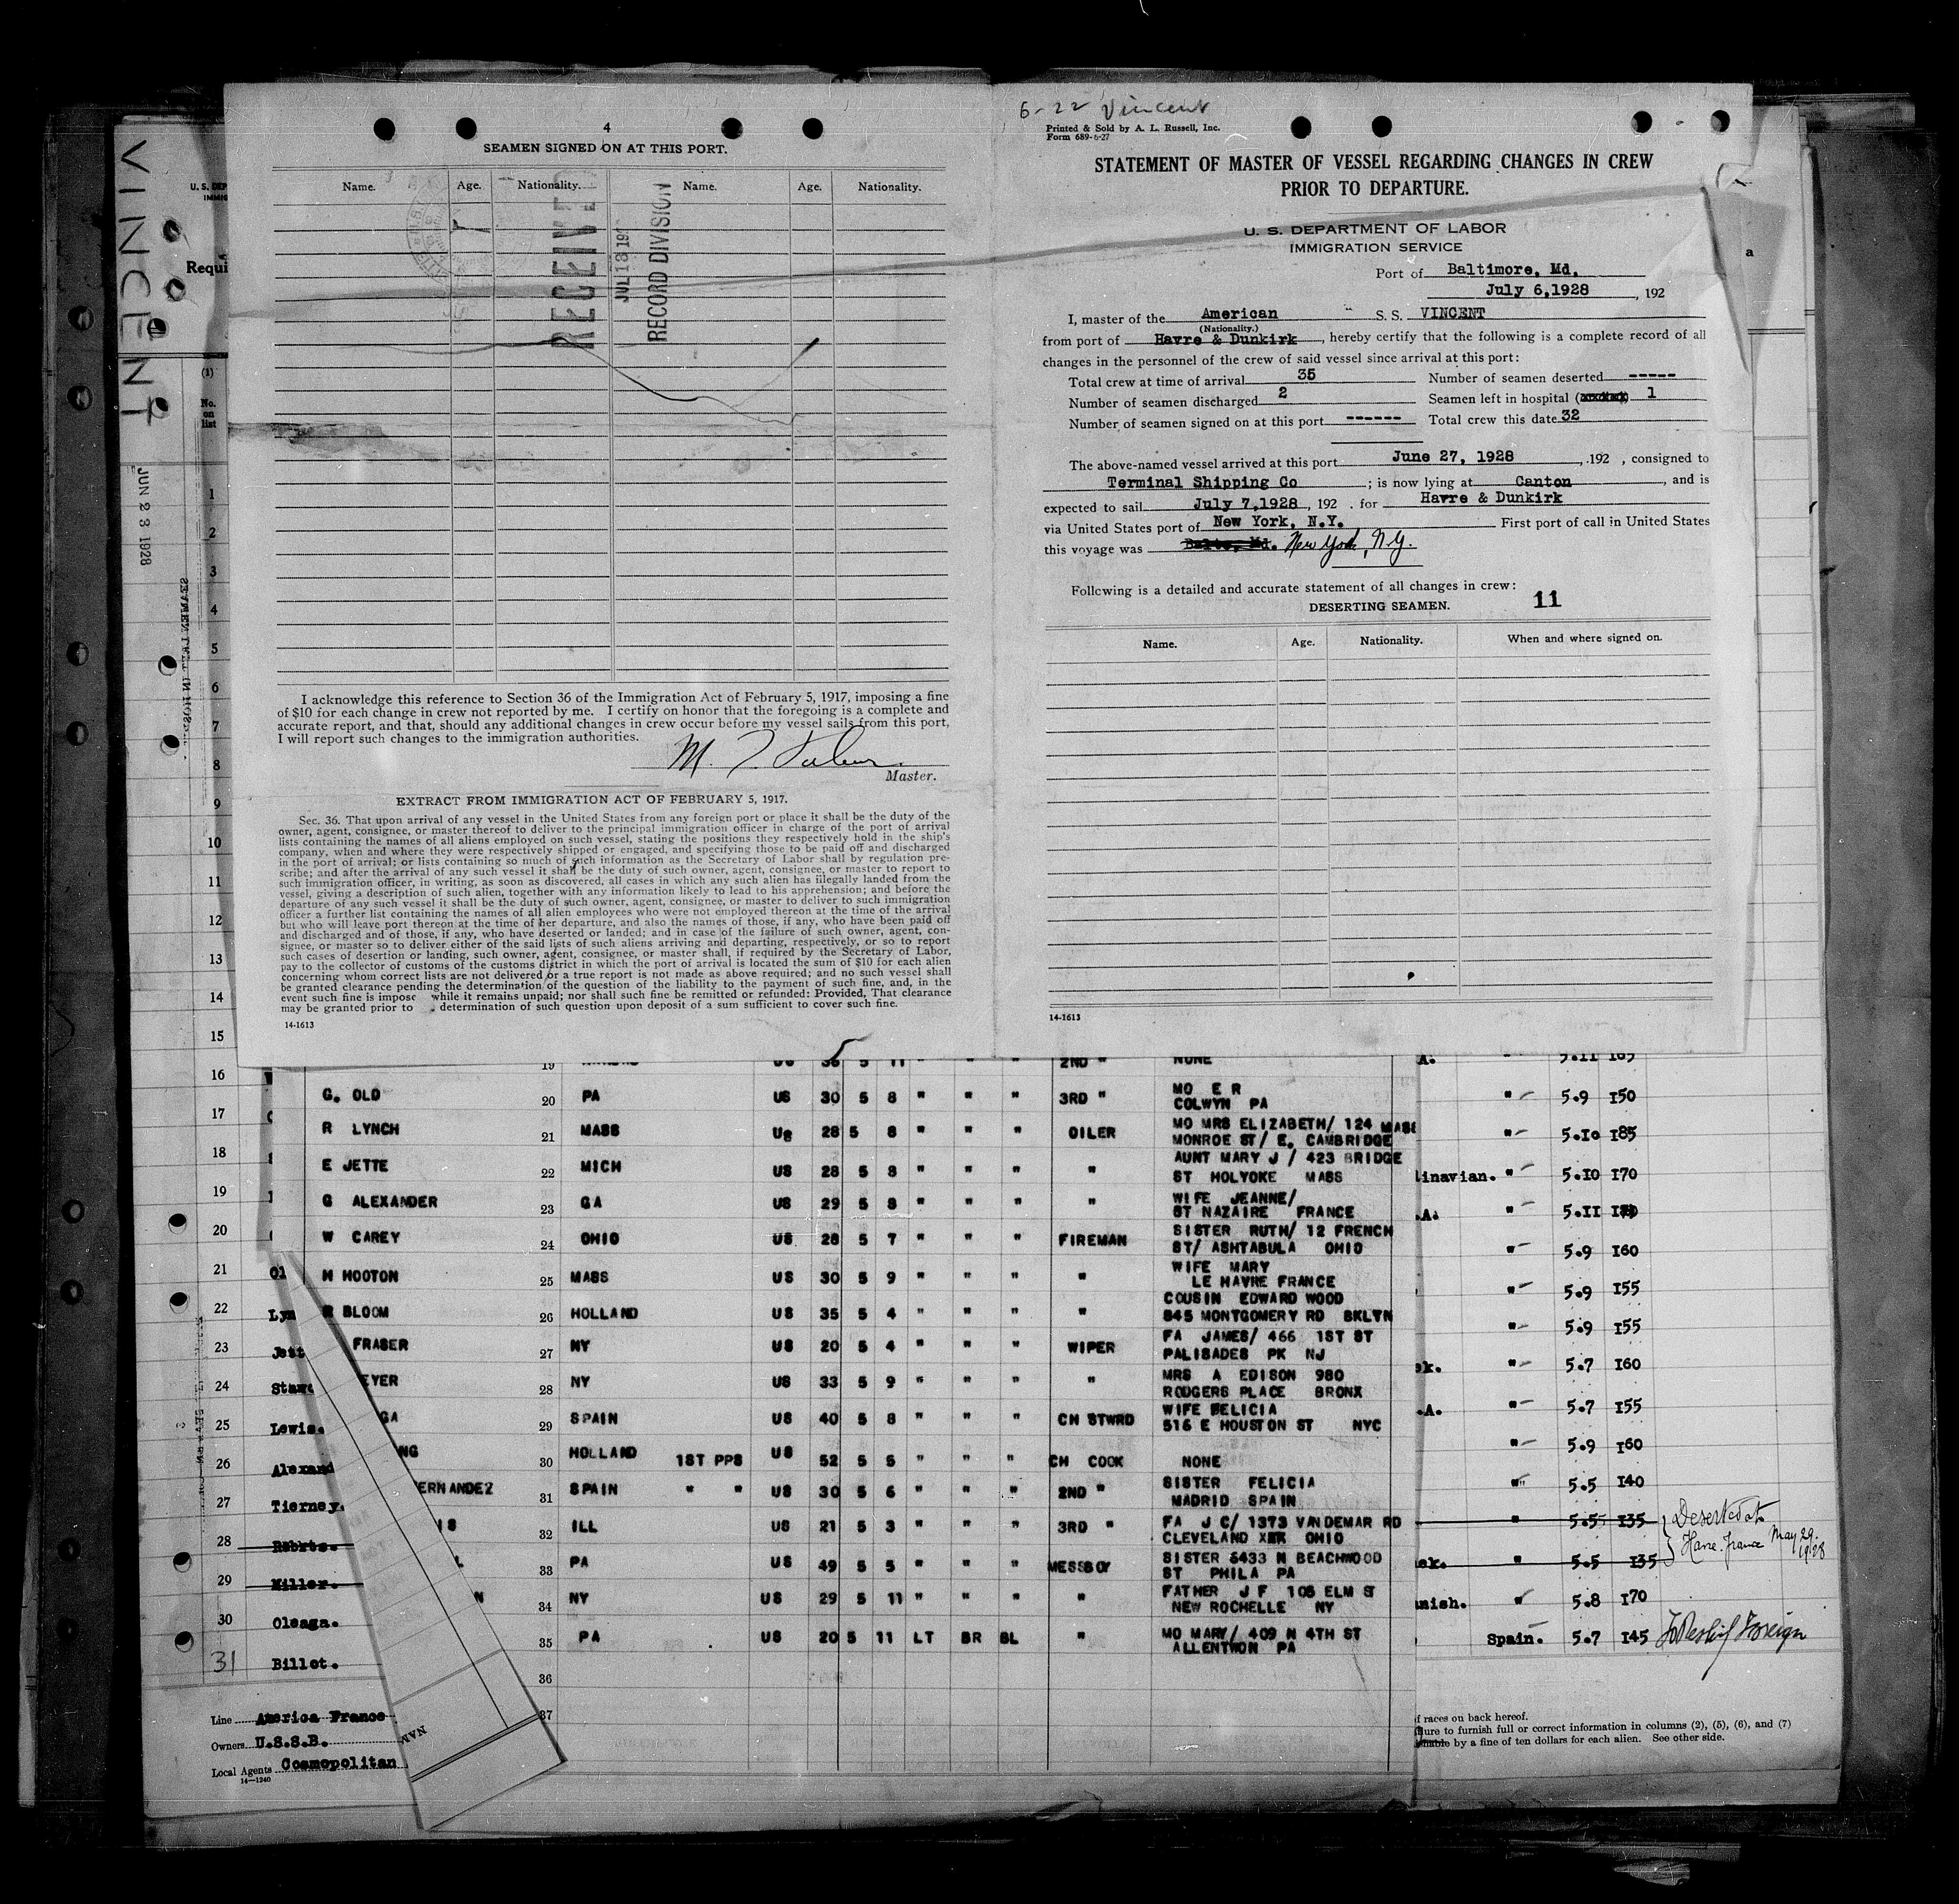 VINCENT
JUN 23 1928
U. S. DEP
IMMIG
Requi
(1)
No.
on
list
1
2
3
4
5
6
7
8
9
10
11
12
13
14
15
16
17
18
19
20
21
22
23
24
25
26
27
28
29
30
31
4
SEAMEN SIGNED ON AT THIS PORT.
Name. Age. Nationality. Name. Age. Nationality.
RECEIVED
JUL 18 192
RECORD DIVISION
I acknowledge this reference to Section 36 of the Immigration Act of February 5, 1917, imposing a fine
of $10 for each change in crew not reported by me. I certify on honor that the foregoing is a complete and
accurate report, and that, should any additional changes in crew occur before my vessel sails from this port,
I will report such changes to the immigration authorities.
Master.
EXTRACT FROM IMMIGRATION ACT OF FEBRUARY 5, 1917.
Sec. 36. That upon arrival of any vessel in the United States from any foreign port or place it shall be the duty of the
owner, agent, consignee, or master thereof to deliver to the principal immigration officer in charge of the port of arrival
lists containing the names of all aliens employed on such vessel, stating the positions they respectively hold in the ship's
company, when and where they were respectively shipped or engaged, and specifying those to be paid off and discharged
in the port of arrival; or lists containing so much of such information as the Secretary of Labor shall by regulation pre-
scribe; and after the arrival of any such vessel it shall be the duty of such owner, agent, consignee, or master to report to
such immigration officer, in writing, as soon as discovered, all cases in which any such alien has illegally landed from the
vessel, giving a description of such alien, together with any information likely to lead to his apprehension; and before the
departure of any such vessel it shall be the duty of such owner, agent, consignee, or master to deliver to such immigration
officer a further list containing the names of all alien employees who were not employed thereon at the time of the arrival
but who will leave port thereon at the time of her departure, and also the names of those, if any, who have been paid off
and discharged and of those, if any, who have deserted or landed; and in case of the failure of such owner, agent, con-
signee, or master so to deliver either of the said lists of such aliens arriving and departing, respectively, or so to report
such cases of desertion or landing, such owner, agent, consignee, or master shall, if required by the Secretary of Labor,
pay to the collector of customs of the customs district in which the port of arrival is located the sum of $10 for each alien
concerning whom correct lists are not delivered or a true report is not made as above required; and no such vessel shall
be granted clearance pending the determination of the question of the liability to the payment of such fine, and, in the
event such fine is impose while it remains unpaid; nor shall such fine be remitted or refunded: Provided, That clearance
may be granted prior to determination of such question upon deposit of a sum sufficient to cover such fine.
14-1613
6-22 Vincent
Printed & Sold by A. L. Russell, Inc.
Form 689-6-27
STATEMENT OF MASTER OF VESSEL REGARDING CHANGES IN CREW
PRIOR TO DEPARTURE.
U. S. DEPARTMENT OF LABOR
IMMIGRATION SERVICE
Port of Baltimore, Md.
July 6,1928, 192
I, master of the American S. S. VINCENT
(Nationality.)
from port of Havre & Dunkirk, hereby certify that the following is a complete record of all
changes in the personnel of the crew of said vessel since arrival at this port:
Total crew at time of arrival 35 Number of seamen deserted -----
Number of seamen discharged 2 Seamen left in hospital ( ) 1
Number of seamen signed on at this port ------ Total crew this date 32
The above-named vessel arrived at this port June 27, 1928, 192 , consigned to
Terminal Shipping Co; is now lying at Canton, and is
expected to sail July 7,1928, 192 . for Havre & Dunkirk
via United States port of New York, N.Y. First port of call in United States
this voyage was Balto, Md. New York, N.Y.
Following is a detailed and accurate statement of all changes in crew:
DESERTING SEAMEN. 11
Name. Age. Nationality. When and where signed on.
14-1613
19 US 36 5 11 " " " 2ND " NONE
G. OLD 20 PA US 30 5 8 " " " 3RD " MO E R
COLWYN PA
R LYNCH 21 MASS US 28 5 8 " " " OILER MO MRS ELIZABETH/ 124 MASS
MONROE ST/ E. CAMBRIDGE
E JETTE 22 MICH US 28 5 8 " " " " AUNT MARY J / 423 BRIDGE
ST HOLYOKE MASS
G ALEXANDER 23 GA US 29 5 8 " " " " WIFE JEANNE/
ST NAZAIRE FRANCE
W CAREY 24 OHIO US 28 5 7 " " " FIREMAN SISTER RUTH/ 12 FRENCH
ST/ ASHTABULA OHIO
H HOOTON 25 MASS US 30 5 9 " " " " WIFE MARY
LE HAVRE FRANCE
R BLOOM 26 HOLLAND US 35 5 4 " " " " COUSIN EDWARD WOOD
845 MONTGOMERY RD BKLYN
FRASER 27 NY US 20 5 4 " " " WIPER FA JAMES/ 466 1ST ST
PALISADES PK NJ
EYER 28 NY US 33 5 9 " " " " MRS A EDISON 980
RODGERS PLACE BRONX
GA 29 SPAIN US 40 5 8 " " " CH STWRD WIFE BELICIA
516 E HOUSTON ST NYC
NG 30 HOLLAND 1ST PPS US 52 5 5 " " " CH COOK NONE
ERNANDEZ 31 SPAIN " " US 30 5 6 " " " 2ND " SISTER FELICIA
MADRID SPAIN
IS 32 ILL US 21 5 3 " " " 3RD " FA J C/ 1373 VANDEMAR RD
CLEVELAND OHIO
33 PA US 49 5 5 " " " MESSBOY SISTER 5433 N BEACHWOOD
ST PHILA PA
N 34 NY US 29 5 11 " " " " FATHER J F 105 ELM ST
NEW ROCHELLE NY
35 PA US 20 5 11 LT BR BL " MO MARY/ 409 N 4TH ST
ALLENTWON PA
36
37
Ol
Lyn
Jett
Stawe
Lewis.
Alexand
Tierney.
Roberts.
Miller.
Oleaga.
Billet.
A. " 5.11 165
" 5.9 150
" 5.10 185
linavian. " 5.10 170
.A. " 5.11
" 5.9 160
" 5.9 155
" 5.9 155
ek. " 5.7 160
.A. " 5.7 155
" 5.9 160
" 5.5 140
" 5.5 135 Deserted at
ak. " 5.5 135 Havre France May 29. 1928
anish. " 5.8 170
Spain. 5.7 145 Foreign
Line America France
Owners U.S.S.B.
Local Agents Cosmopolitan
14-1240
NAM
f races on back hereof.
ure to furnish full or correct information in columns (2), (5), (6), and (7)
by a fine of ten dollars for each alien. See other side.